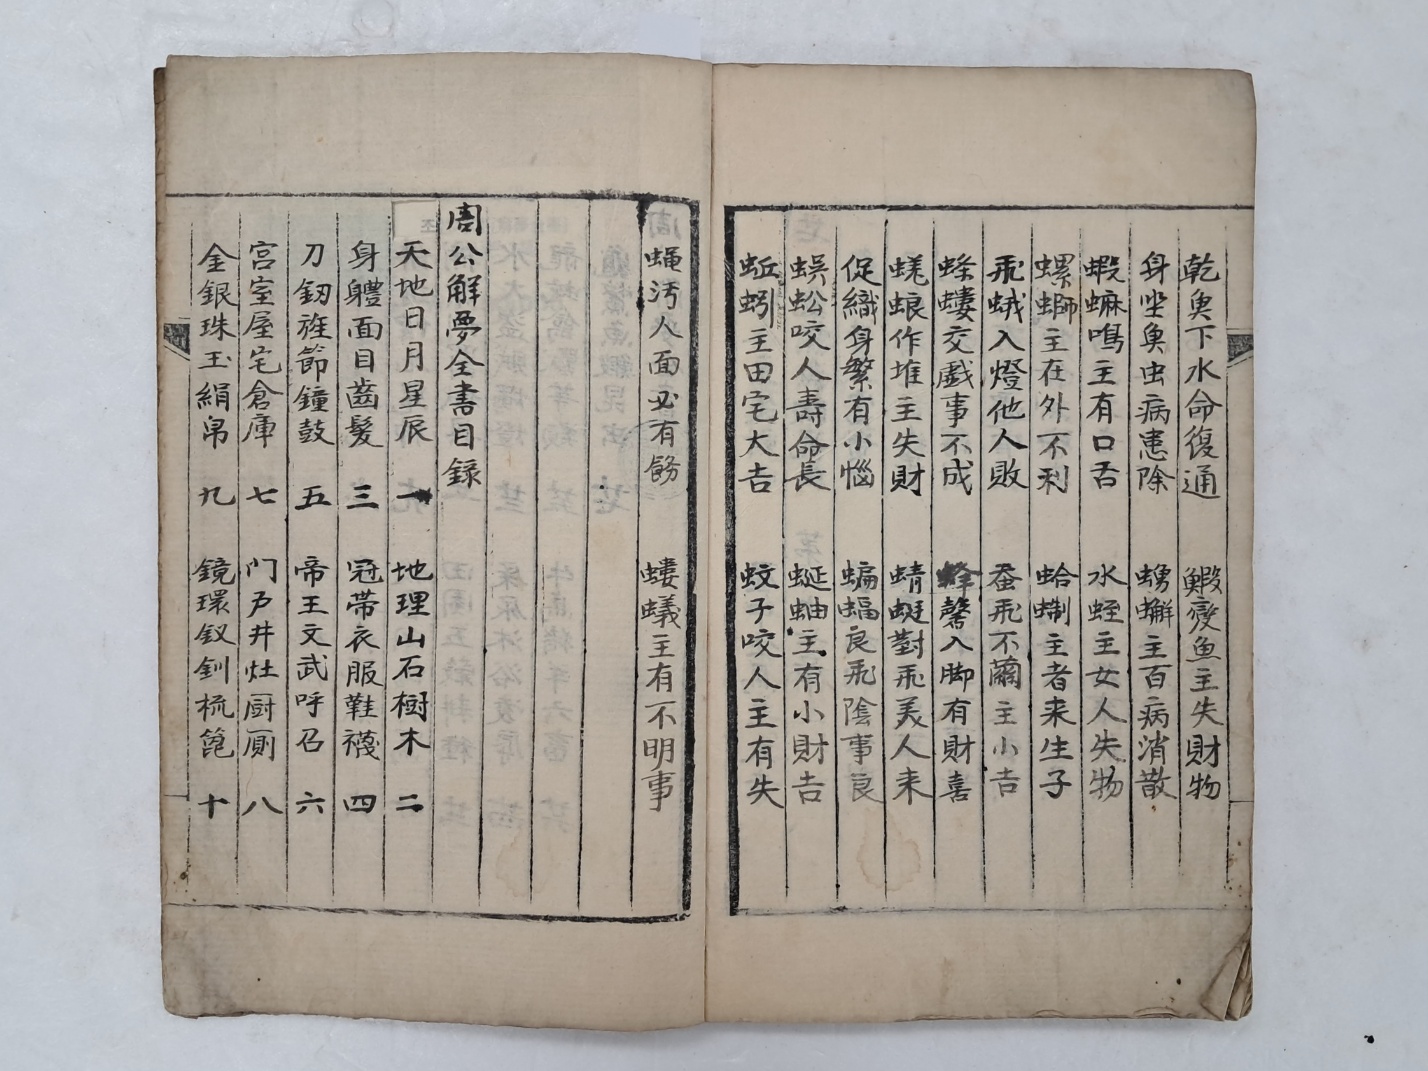 乾魚下水命復通　鰕變魚主失財物
身坐魚虫病患除　螃蠏主百病消散
蝦蟆鳴主有口舌　水蛭主女人失物
螺螄主在外不利　蛤蜊主者来生子
飛蛾入燈他人敗　蚕飛不繭主小吉
蜂蝼交戲事不成　蜂螫入脚有財喜
蜣蜋作堆主失財　蜻蜓對飛美人来
促織身繁有小惱　蝙蝠良飛陰事良
蜈蚣咬人壽命長　蜒蚰主有小財吉
蚯蚓主田宅大吉　蚊子咬人主有失
蝇污人面必有餝　蝼蟻主有不明事
周公解夢全書目録
天地日月星辰　一　地理山石樹木　二
身軆面目齒髪　三　冠帶衣服鞋襪　四
刀釰旌節鐘鼓　五　帝王文武呼召　六
宫室屋宅倉庫　七　门户井灶厨厠　八
金銀珠玉絹帛　九　鏡環釵釧梳箆　十